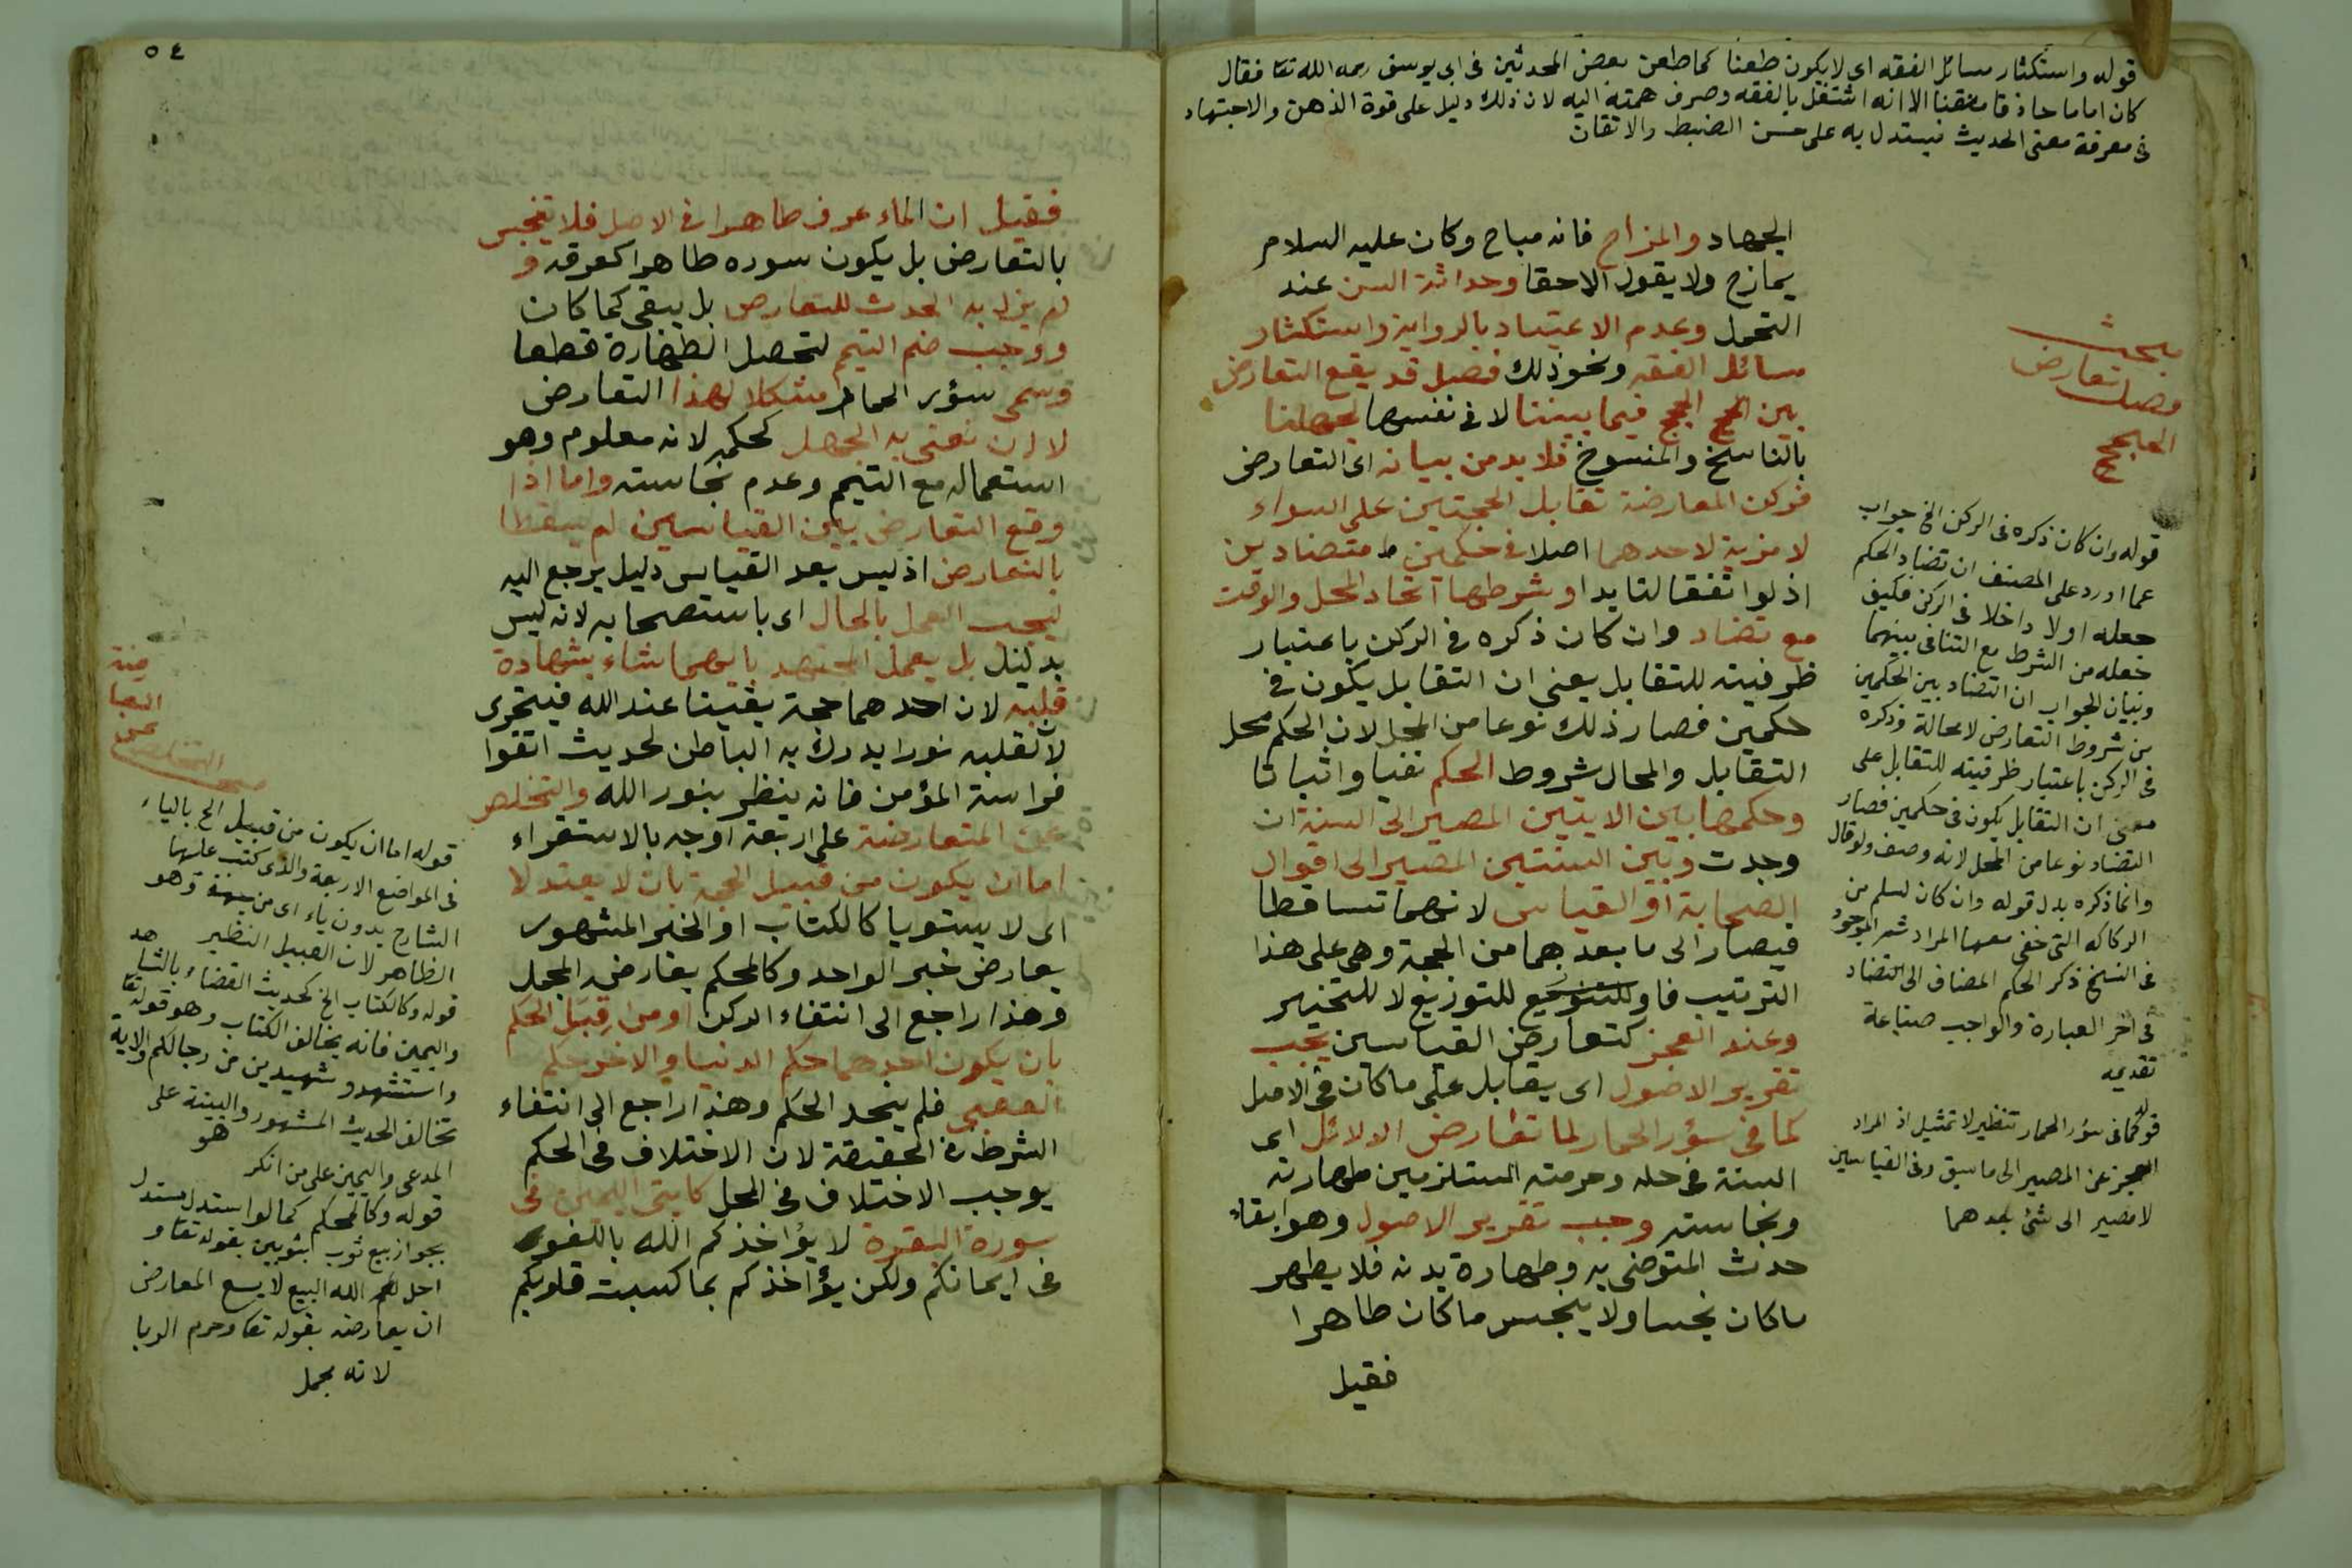 قوله واستكثار مسائل الفقه اى لا يكون طعنا كما طعن بعض المحدثين فى ابى يوسف رحمه الله تعا فقال
كان اماما حاذقا متقنا الا انه اشتغل بالفقه وصرف همته اليه لان ذلك دليل على قوة الذهن والاجتهاد
فى معرفة معنى الحديث فيستدل به على حسن الضبط والاتقان
الجهاد والمزاح فانه مباح وكان عليه السلام
يمازح ولا يقول الاحقا وحداثة السن عند
التحمل وعدم الاعتياد بالرواية واستكثار
مسائل الفقه ونحو ذلك فصل قد يقع التعارض
بين الحجج الحجج فيما بيننا لا فى نفسها لجهلنا
بالناسخ والمنسوخ فلا بد من بيانه اى التعارض
فركن المعارضة تقابل الحجتين على السواء
لا مزية لاحدهما اصلا فى حكمين متضادين
اذ لو اتفقا لتايدا وشرطها اتحاد المحل والوقت
مع تضاد وان كان ذكره فى الركن باعتبار
ظرفيته للتقابل يعنى ان التقابل يكون فى
حكمين فصار ذلك نوعا من المحل لان الحكم محل
التقابل والمحال شروط الحكم نفيا واثباتا
وحكمها بين الايتين المصير الى السنة ان
وجدت وبين السنتين المصير الى اقوال
الصحابة او القياس لانهما تساقطا
فيصار الى ما بعدهما من الحجة وهى على هذا
الترتيب فاو للتنويع للتوزيع لا للتخيير
وعند العجز كتعارض القياسين يجب
تقرير الاصول اى يقابل على ما كان فى الاصل
كما فى سؤر الحمار لما تعارض الدلائل اى
السنة فى حله وحرمته المستلزمين طهارته
ونجاسته وجب تقرير الاصول وهو ابقاء
حدث المتوضى به وطهارة بدنه فلا يطهر
ما كان نجسا ولا ينجس ما كان طاهرا
فقيل
بحث
فصل تعارض
الحجج
قوله وان كان ذكره فى الركن الخ جواب
عما اورد على المصنف ان تضاد الحكم
جعله اولا داخلا فى الركن فكيف
جعله من الشرط مع التنافى بينهما
وبيان الجواب ان التضاد بين الحكمين
من شروط التعارض لا محالة وذكره
فى الركن باعتبار ظرفيته للتقابل على
معنى ان التقابل يكون فى حكمين فصار
التضاد نوعا من المحل لانه وصف ولو قال
وانما ذكره بدل قوله وان كان لسلم من
الركاكه التى خفى معها المراد ثم الموجود
فى النسخ ذكر الحكم المضاف الى التضاد
فى اخر العبارة والواجب صناعة
تقديمه
قوله كما فى سؤر الحمار تنظير لا تمثيل اذ المراد
العجز عن المصير الى ما سبق وفى القياسين
لا مصير الى شئ بعدهما
٥٤
فقيل ان الماء عرف طاهرا فى الاصل فلا يتنجس
بالتعارض بل يكون سوره طاهرا كعرقه و
لم يزل به الحدث للتعارض بل يبقى كما كان
ووجب ضم التيمم لتحصل الطهارة قطعا
وسمى سؤر الحمار مشكلا لهذا التعارض
لا ان نعنى به الجهل لحكمه لانه معلوم وهو
استعماله مع التيمم وعدم نجاسته واما اذا
وقع التعارض بين القياسين لم يسقطا
بالتعارض اذ ليس بعد القياس دليل يرجع اليه
ليجب العمل بالحال اى باستصحابه لانه ليس
بدليل بل يعمل المجتهد بايهما شاء بشهادة
قلبه لان احدهما حجة يقينا عند الله فيتحرى
لان لقلبه نورا يدرك به الباطن لحديث اتقوا
فراسة المؤمن فانه ينظر بنور الله والتخلص
عن المتعارضة على اربعة اوجه بالاستقراء
اما ان يكون من قبيل الحجة بان لا يعتدلا
اى لا يستويا كالكتاب او الخبر المشهور
يعارض خبر الواحد وكالمحكم يعارض المجمل
وهذا راجع الى انتفاء الركن او من قبل الحكم
بان يكون احدهما حكم الدنيا والاخر حكم
العقبى فلم يتحد الحكم وهذا راجع الى انتفاء
الشرط فى الحقيقة لان الاختلاف فى الحكم
يوجب الاختلاف فى المحل كايتى اليمين فى
سورة البقرة لا يؤاخذكم الله باللغو
فى ايمانكم ولكن يؤاخذكم بما كسبت قلوبكم
التخلص
قوله اما ان يكون من قبيل الخ بالياء
فى المواضع الاربعة والذى كتب عليها
الشارح بدون ياء اى من جهة وهو
الظاهر لان القبيل النظير
قوله وكالكتاب الخ كحديث القضاء بالشاهد
واليمين فانه يخالف الكتاب وهو قوله تعا
واستشهدو شهيدين من رجالكم الاية
تخالف الحديث المشهور والبينة على
المدعى واليمين على من انكر
قوله وكالمحكم كما لو استدل مستدل
بجواز بيع ثوب بثوبين بقوله تعا و
احل الله البيع لا يسع المعارض
ان يعارضه بقوله تعا وحرم الربا
لانه مجمل